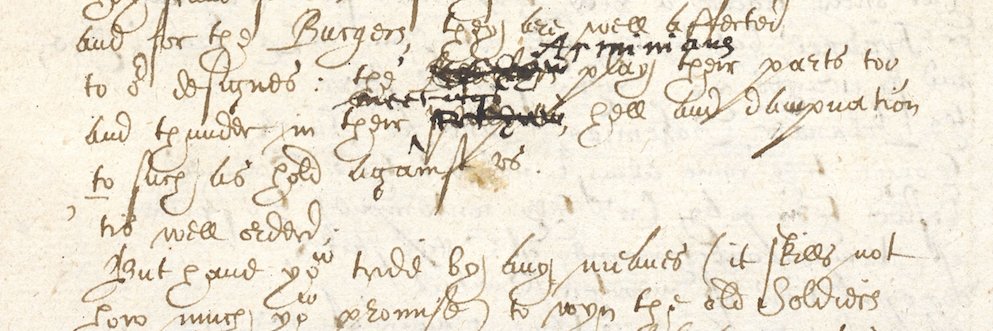 and for the Burgers, they are well affected
Arminians
to oʳ designes: the play their parts too
meetings
and thunder in their , hell and dampnation
to such as hold against vs.
tis well orderd,
But haue yoʷ tride by any meanes (it skills not
how much yoʷ promise) to wyn the old Soldiers